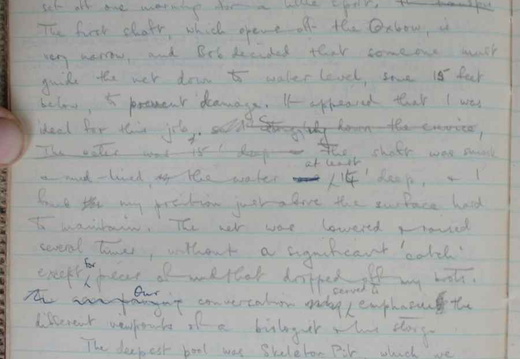 set off one morning for a little sport.
The first shaft, which opens off the Oxbow, is
very narrow, and Bob decided that someone must
guide the net down to water level, some 15 feet
below, to prevent damage. It appeared that I was
ideal for this job, down the crevice,
The water was 15' deep - The shaft was smooth
& mud-lined, the water at least 15' deep, & I
found my position just above the surface hard
to maintain. The net was lowered & raised
several times, without a significant 'catch'
except for pieces of mud that dripped off my boots.
Our conversation served to emphasise the
different viewpoints of a biologist & his stooge.
The deepest pool was Skeleton Pit, which we